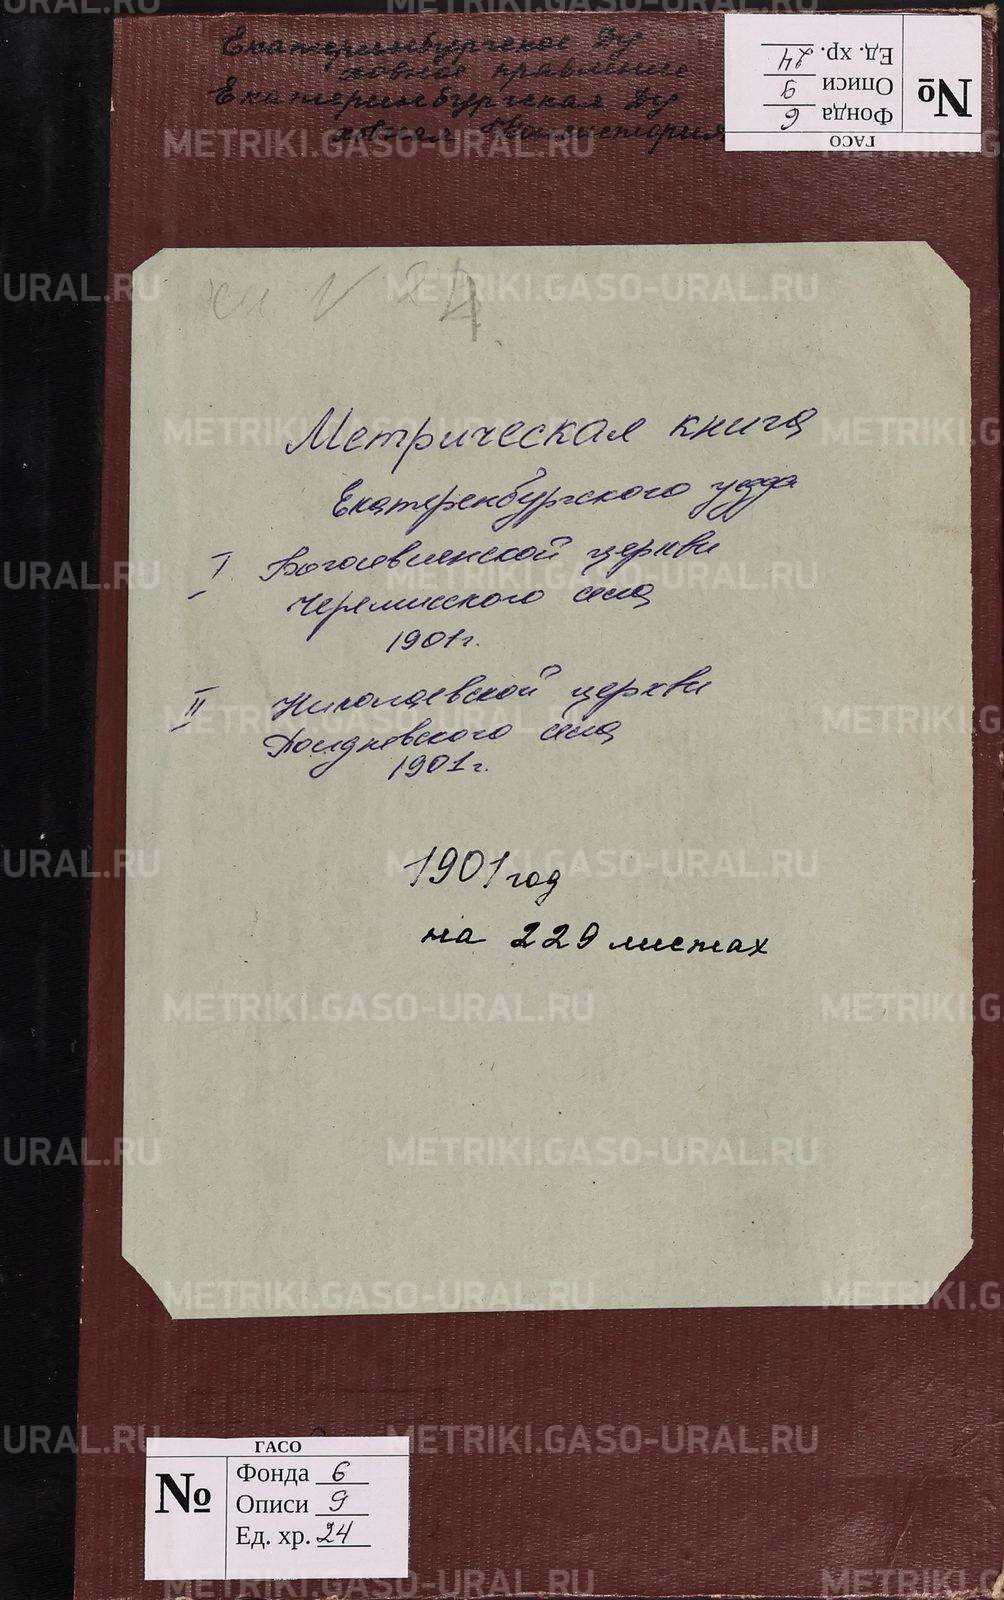 Екатеринбургское Ду
ховное правление
Екатеринбургская Ду
ховная Консистория
ГАСО
№
Фонда 6
Описи 9
Ед. хр. 24
24
Метрическая книга
Екатеренбургского уезда
I. Богоявленской церкви
Черемисского села
1901 г.
II Николаевской церкви
Полдневского села
1901 г.
1901 год
на 229 листах
ГАСО
№
Фонда 6
Описи 9
Ед. хр. 24
METRIKI.GASO-URAL.RU